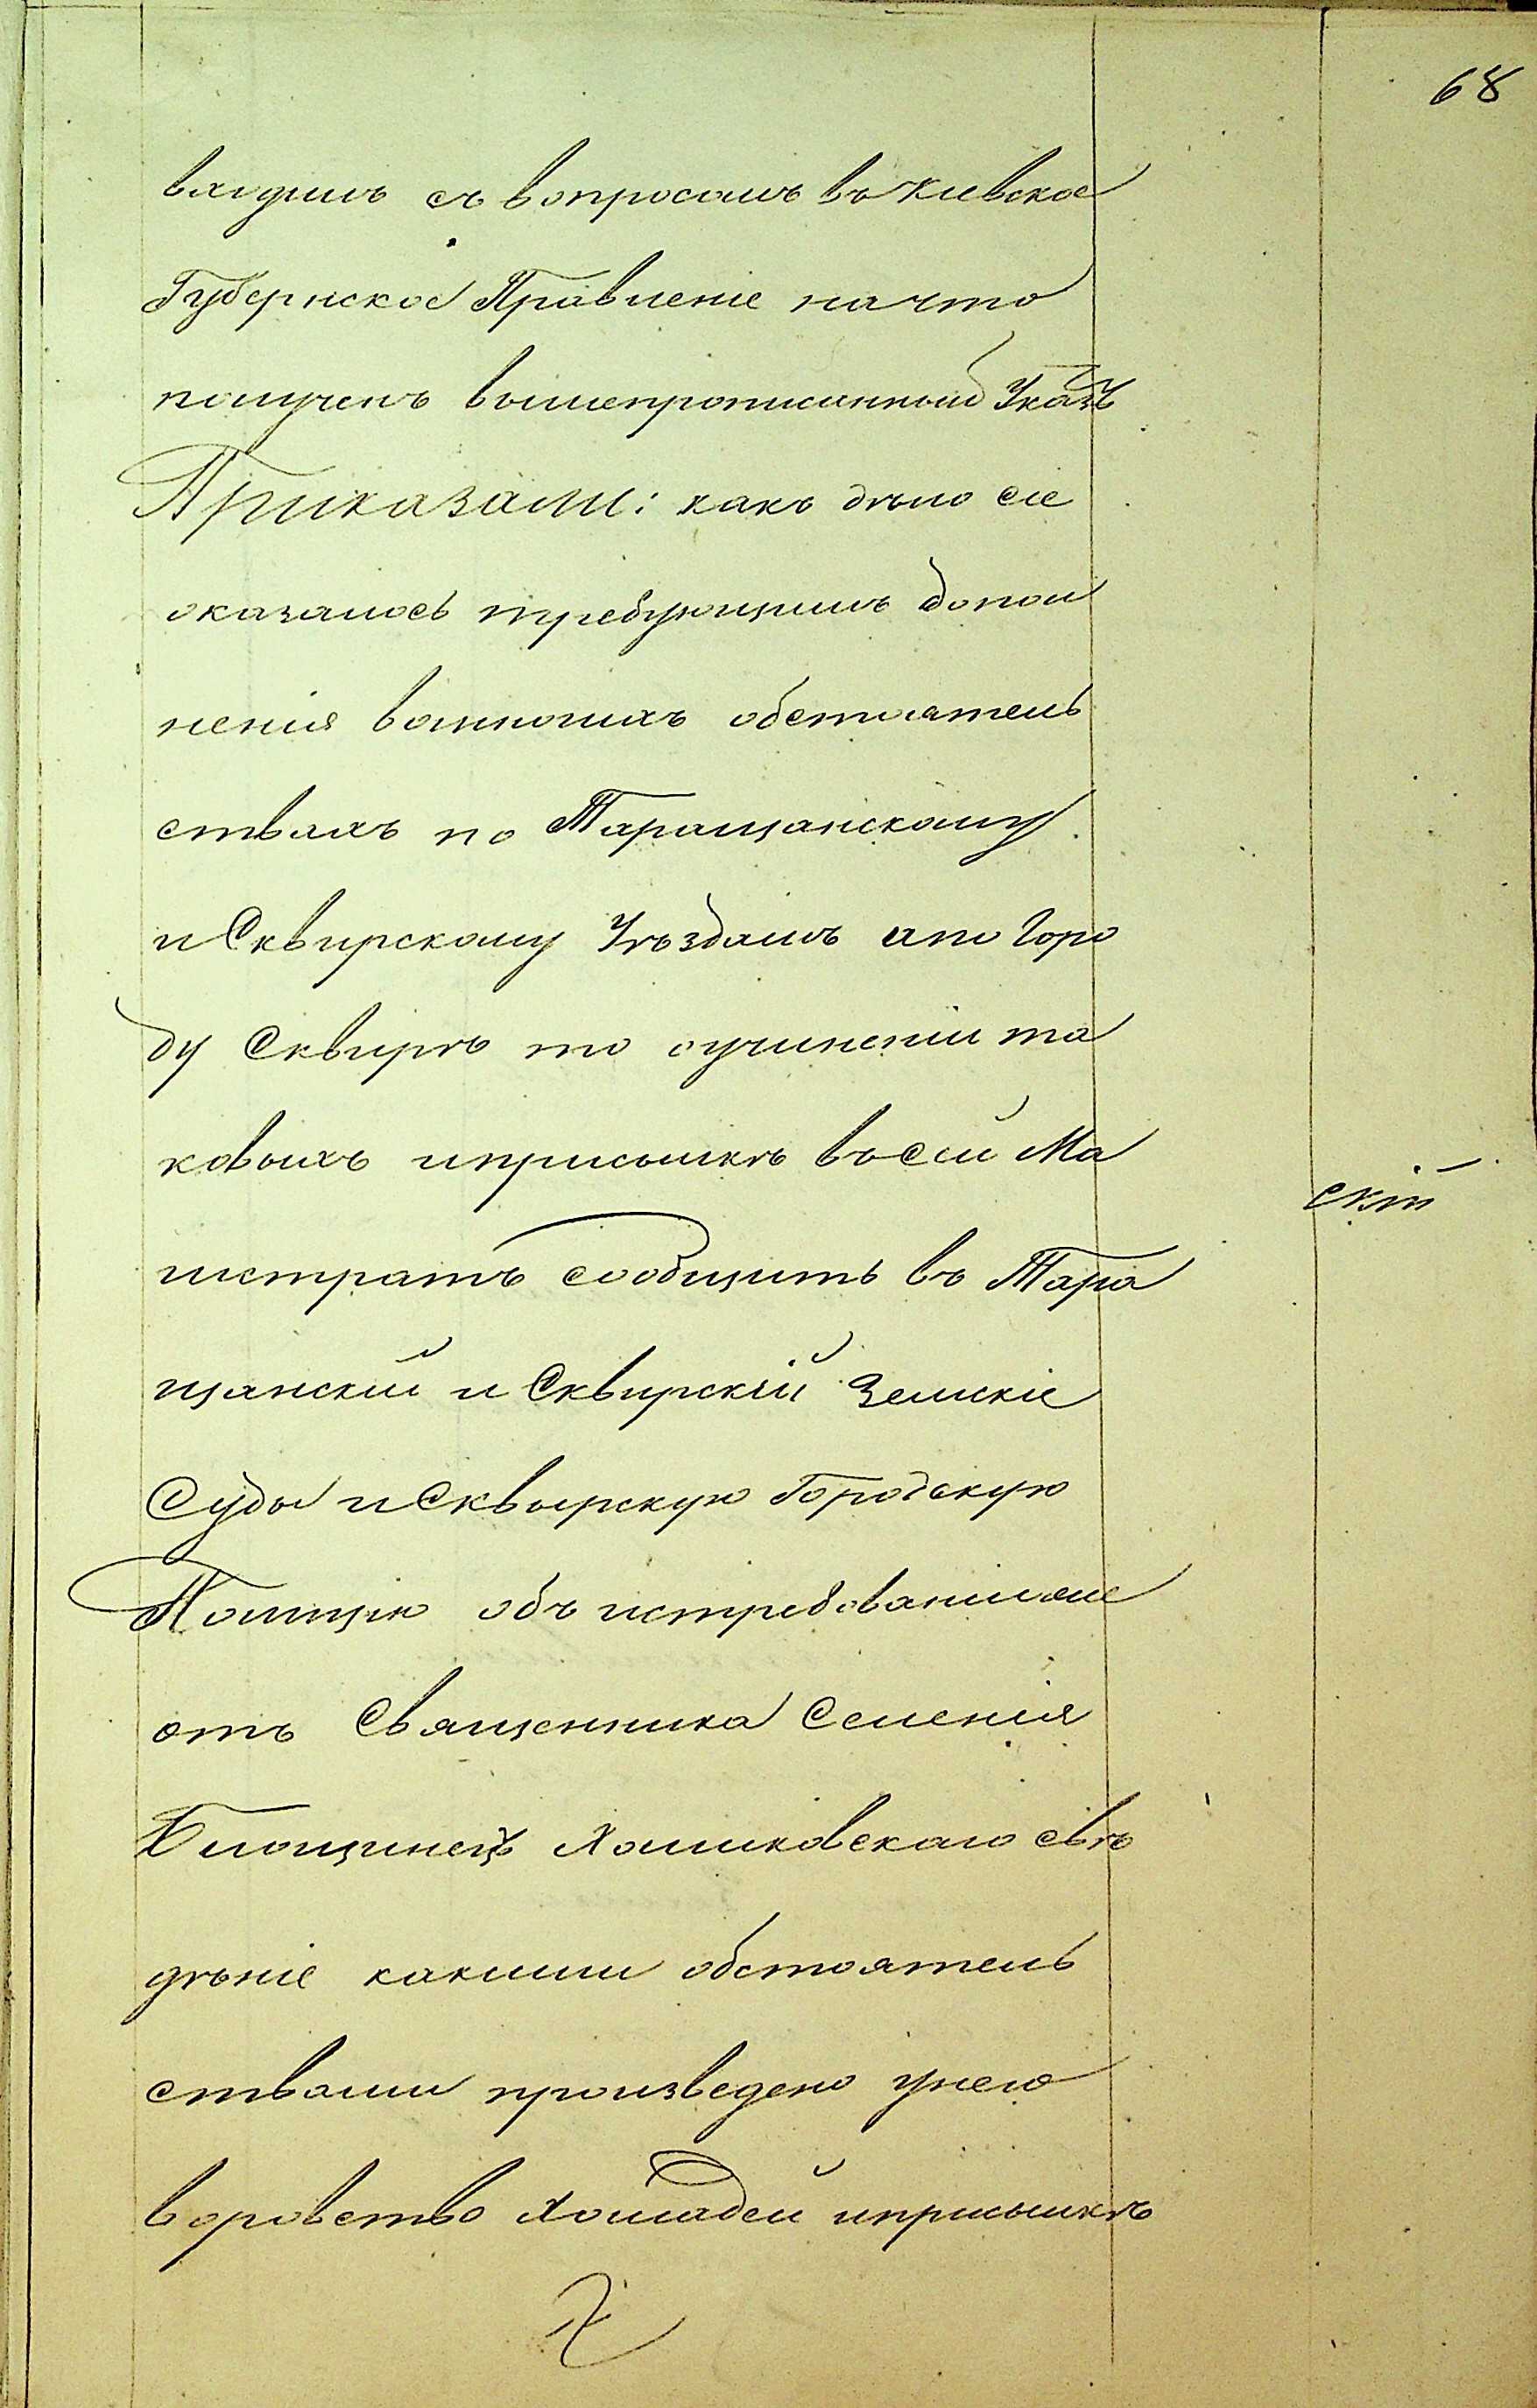 68
входилъ съ вопросомъ въ Киевское
Губернское Правленіе на что
полученъ вышепрописанный Указъ
Приказали: какъ дѣло сіе
оказалось требующимъ допол
ненія во многихъ обстоятель
ствахъ по Таращанскому
и Сквирскому Уѣздамъ и по горо
ду Сквирѣ то о учиненіи та
ковыхъ и присылкѣ въ сей Ма
гистратъ сообщить въ Тара
щанскій и Сквирскій Земскіе
Суды и Сквырскую Городскую
Полицію объ истребованіи
отъ Священника Селенія
Блощинецъ Хомиковскаго свѣ
дѣніе какими обстоятель
ствами произведено у него
воровство Лошадей и присылкѣ
скій